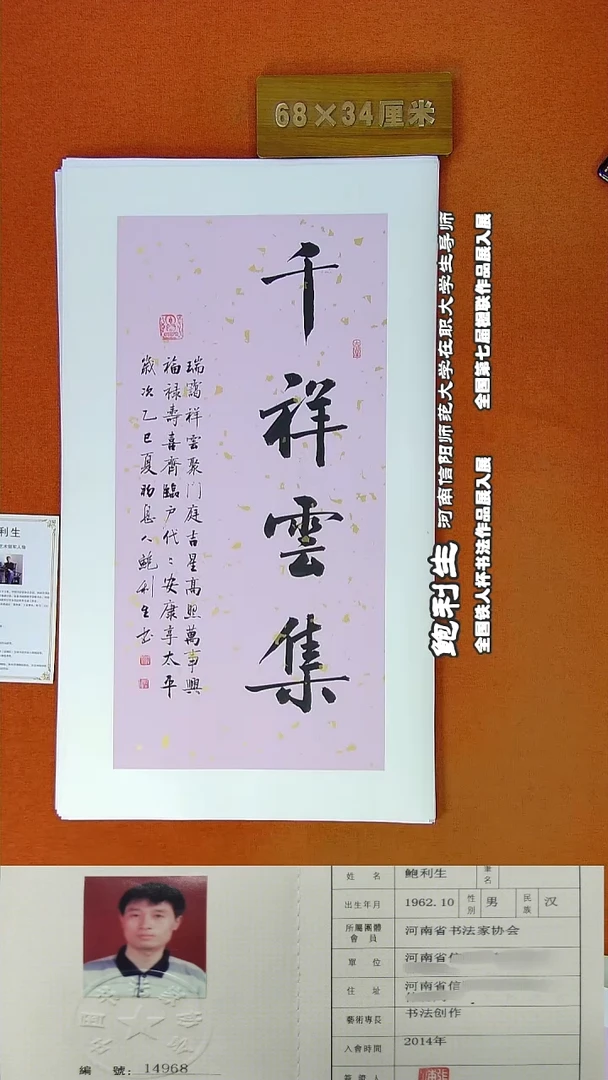 68×34厘米
千祥雲集
瑞靄祥雲聚門庭吉星高照萬事興
福禄壽喜齊臨户代〻安康享太平
歲次乙巳夏初息人鮑利生书
鲍利生
河南信阳师范大学在职大学生导师
全国铁人杯书法作品展入展
全国第七届楹联作品展入展
利生
姓名
鲍利生
筆名
出生年月
1962.10
性别
男
民族
汉
所屬團體會員
河南省书法家协会
單位
河南省信
住址
河南省信
藝術專長
书法创作
入會時間
2014年
簽證人
編號:14968